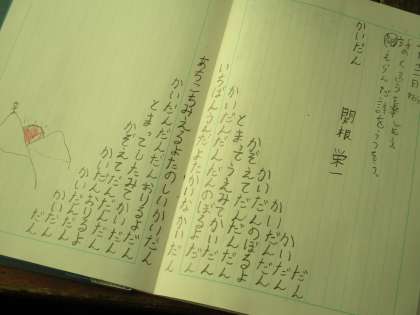 詩のくふうを考え
えらんだ詩をうつそう。
かいだん
関根 栄一
だん
かいだん
かいだんだん
かいだんのぼるよ
かぞえてだんだん
とまってうえみてかいだん
かいだんだんだんのぼるよだん
いちばんうえだよたかいなかいだん
あちこちみえるよたのしいかいだん
かいだんだんだんおりるよだん
とまってしたみてかいだん
かぞえてだんだん
かいだんおりるよ
かいだんだん
かいだん
だん